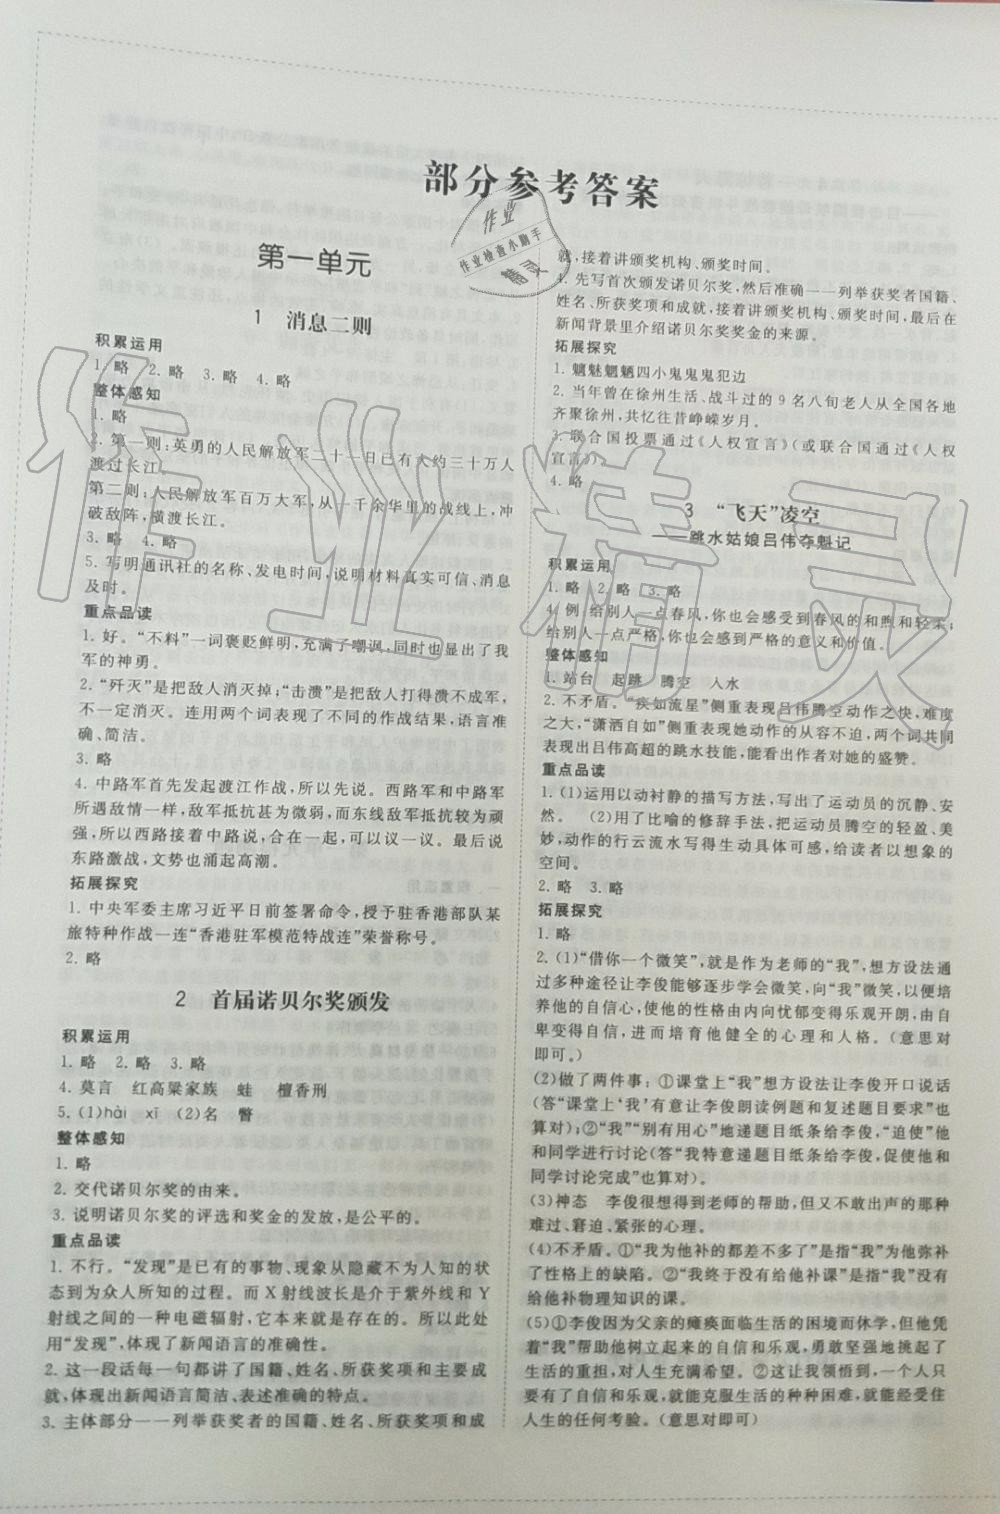 部分参考答案
第一单元
1 消息二则
积累运用
1. 略 2. 略 3. 略 4. 略
整体感知
1. 略
2. 第一则：英勇的人民解放军二十一日已有大约三十万人
渡过长江。
第二则：人民解放军百万大军，从一千余华里的战线上，冲
破敌阵，横渡长江。
3. 略 4. 略
5. 写明通讯社的名称、发电时间，说明材料真实可信、消息
及时。
重点品读
1. 好。“不料”一词褒贬鲜明，充满了嘲讽，同时也显出了我
军的神勇。
2. “歼灭”是把敌人消灭掉；“击溃”是把敌人打得溃不成军，
不一定消灭。连用两个词表现了不同的作战结果，语言准
确、简洁。
3. 略
4. 中路军首先发起渡江作战，所以先说。西路军和中路军
所遇敌情一样，敌军抵抗甚为微弱，而东线敌军抵抗较为顽
强，所以西路接着中路说，合在一起，可以议一议。最后说
东路激战，文势也涌起高潮。
拓展探究
1. 中央军委主席习近平日前签署命令，授予驻香港部队某
旅特种作战一连“香港驻军模范特战连”荣誉称号。
2. 略
2 首届诺贝尔奖颁发
积累运用
1. 略 2. 略 3. 略
4. 莫言 红高粱家族 蛙 檀香刑
5. (1)hài xī (2)名 瞥
整体感知
1. 略
2. 交代诺贝尔奖的由来。
3. 说明诺贝尔奖的评选和奖金的发放，是公平的。
重点品读
1. 不行。“发现”是已有的事物、现象从隐藏不为人知的状
态到为众人所知的过程。而 X 射线波长是介于紫外线和 Y
射线之间的一种电磁辐射，它本来就是存在的。所以此处
用“发现”，体现了新闻语言的准确性。
2. 这一段话每一句都讲了国籍、姓名、所获奖项和主要成
就，体现出新闻语言简洁、表述准确的特点。
3. 主体部分——列举获奖者的国籍、姓名、所获奖项和成
就，接着讲颁奖机构、颁奖时间。
4. 先写首次颁发诺贝尔奖，然后准确一一列举获奖者国籍、
姓名、所获奖项和成就，接着讲颁奖机构、颁奖时间，最后在
新闻背景里介绍诺贝尔奖奖金的来源。
拓展探究
1. 魑魅魍魉四小鬼鬼鬼犯边
2. 当年曾在徐州生活、战斗过的 9 名八旬老人从全国各地
齐聚徐州，共忆往昔峥嵘岁月。
3. 联合国投票通过《人权宣言》（或联合国通过《人权
宣言》）
4. 略
3 “飞天”凌空
——跳水姑娘吕伟夺魁记
积累运用
1. 略 2. 略 3. 略
4. 例：给别人一点春风，你也会感受到春风的和煦和轻柔；
给别人一点严格，你也会感到严格的意义和价值。
整体感知
1. 站台 起跳 腾空 入水
2. 不矛盾。“疾如流星”侧重表现吕伟腾空动作之快，难度
之大，“潇洒自如”侧重表现她动作的从容不迫，两个词共同
表现出吕伟高超的跳水技能，能看出作者对她的盛赞。
重点品读
1. (1)运用以动衬静的描写方法，写出了运动员的沉静、安
然。 (2)用了比喻的修辞手法，把运动员腾空的轻盈、美
妙，动作的行云流水写得生动具体可感，给读者以想象的
空间。
2. 略 3. 略
拓展探究
1. 略
2. (1)“借你一个微笑”，就是作为老师的“我”，想方设法通
过多种途径让李俊能够逐步学会微笑，向“我”微笑，以便培
养他的自信心，使他的性格由内向忧郁变得乐观开朗，由自
卑变得自信，进而培育他健全的心理和人格。（意思对
即可。）
(2)做了两件事：①课堂上“我”想方设法让李俊开口说话
（答“课堂上‘我’有意让李俊朗读例题和复述题目要求”也
算对）；②“我”“别有用心”地递题目纸条给李俊，“迫使”他
和同学进行讨论（答“我特意递题目纸条给李俊，促使他和
同学讨论完成”也算对）。
(3)神态 李俊很想得到老师的帮助，但又不敢出声的那种
难过、窘迫、紧张的心理。
(4)不矛盾。①“我为他补的都差不多了”是指“我”为他弥补
了性格上的缺陷。②“我终于没有给他补课”是指“我”没有
给他补物理知识的课。
(5)①李俊因为父亲的瘫痪面临生活的困境而休学，但他凭
着“我”帮助他树立起来的自信和乐观，勇敢坚强地挑起了
生活的重担，对人生充满希望。②这让我领悟到，一个人只
要有了自信和乐观，就能克服生活的种种困难，就能经受住
人生的任何考验。（意思对即可）
作业
作业检查小助手
精灵
作业精灵